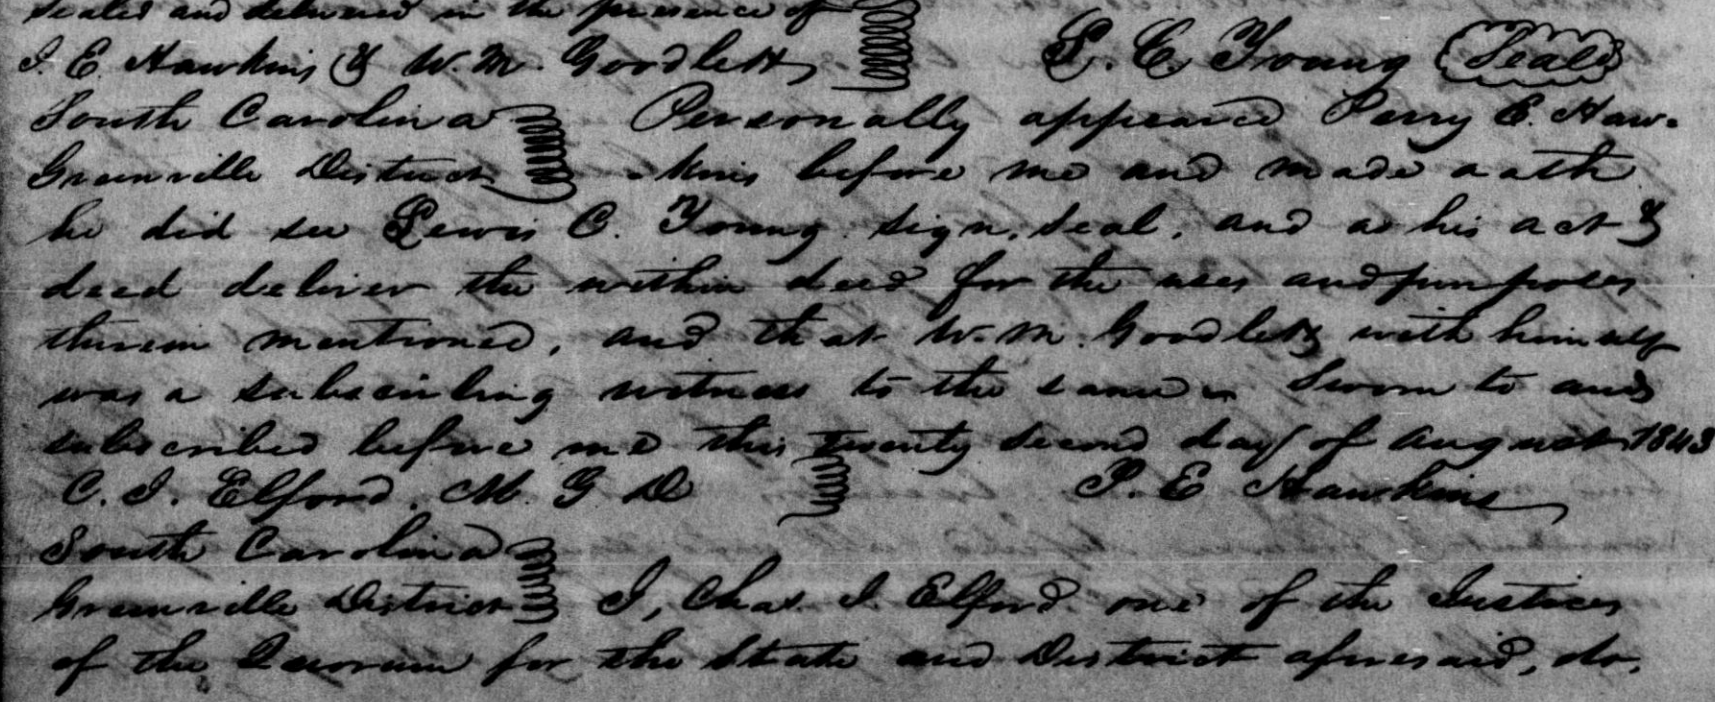 sealed and delivered in the presence of
P. E. Hawkins & W. M. Goodlett L. C. Young Seal
South Carolina Personally appeared Perry E. Haw-
Greenville District -kins before me and made oath
he did see Lewis C. Young sign, seal, and as his act &
deed deliver the within deed for the uses and purposes
therein mentioned, and that W. M. Goodlett with himself
was a subscribing witness to the same. Sworn to and
subscribed before me this twenty second day of August 1843
C. J. Elford. M. G D P. E Hawkins
South Carolina
Greenville District I, Chas. J. Elford one of the Justices
of the Quorum for the State and District aforesaid, do,